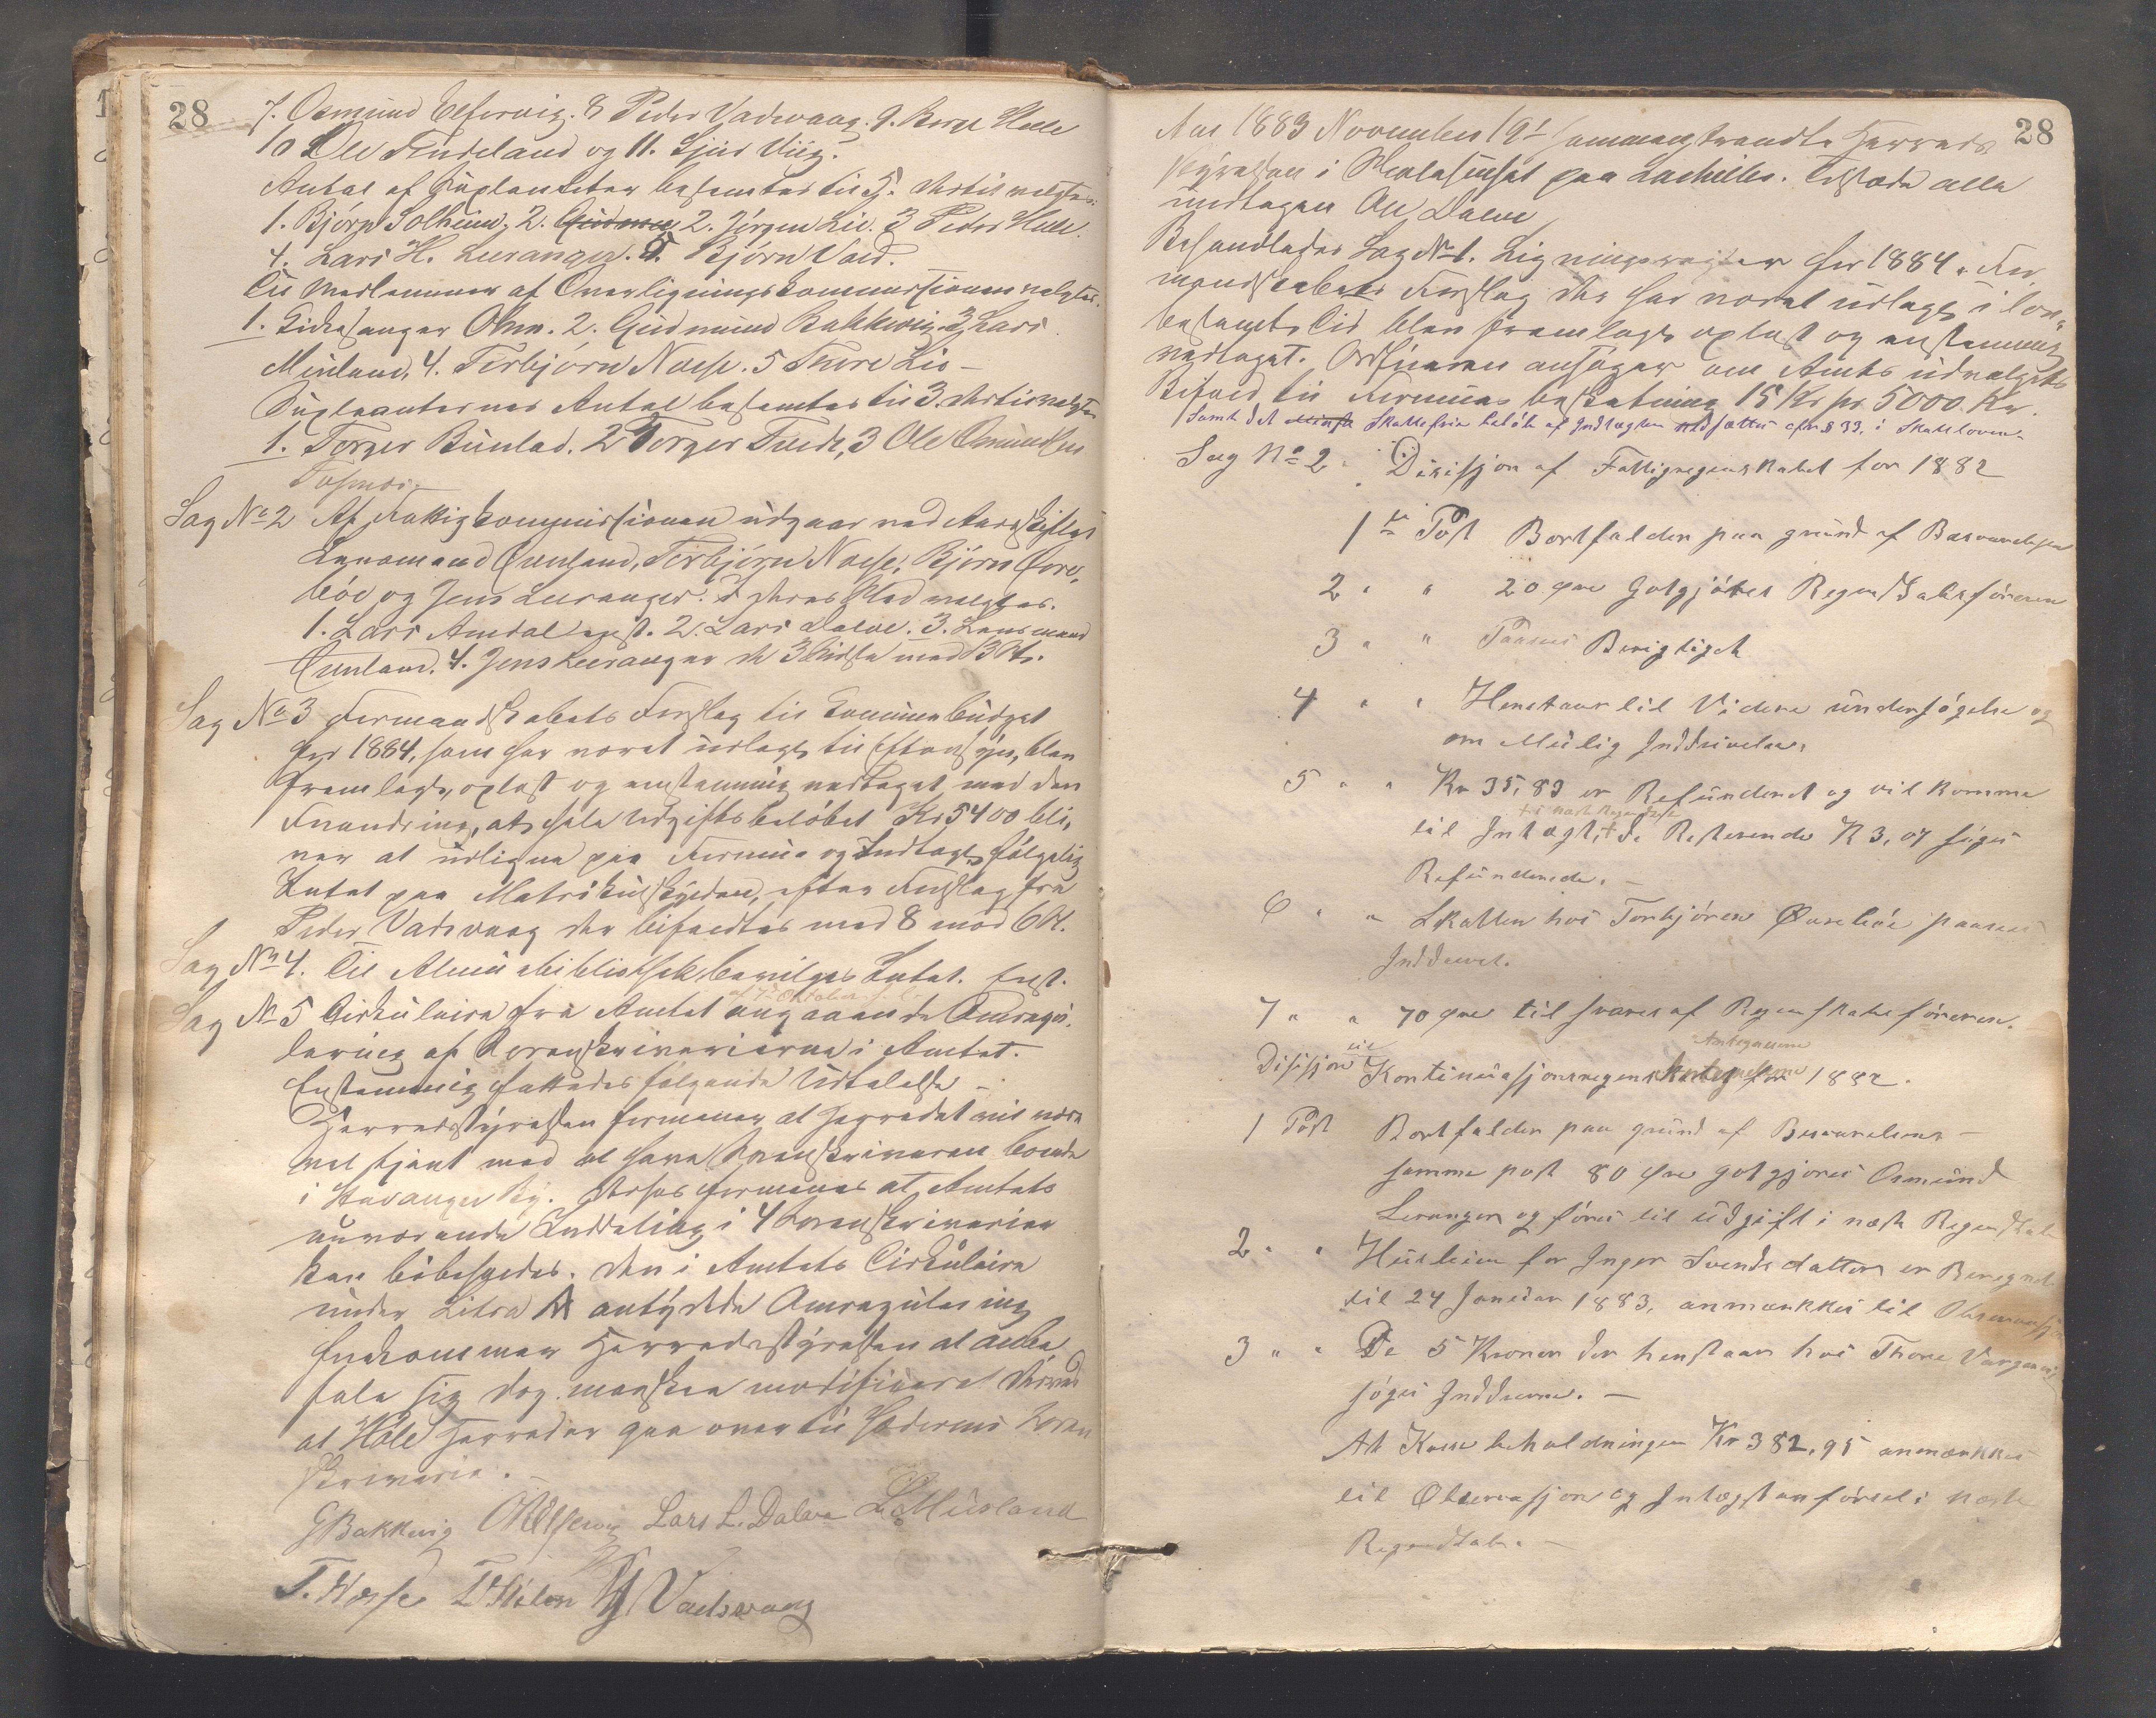 28
7. Osmund Eltervig. 8 Peder Vadsvaag. 9. Borge Helle
10 Ole Tendeland og 11. Sjur Viig.
Antal af Suplanter bestemtes til 5. dertil valgtes:
1. Bjørn Solheim, 2. Gudmun 2. Jørgen Lie. 3 Peder Helle.
4. Lars H. Leeranger. 5. Bjørn Vald.
Til Medlemmer af Overligningskommissionen valgtes.
1. Kirkesanger Ohm. 2. Gudmund Bakkevig. 3 Lars
Musland, 4. Torbjørn Næsse. 5 Thore Lie -
Supleanternes Antal bestemtes til 3. dertil valgtes
1. Torger Bunlad. 2 Torger Tveidt, 3 Ole Osmundsen
Sag No 2 Af Fattigkommissionen udgaar ved Aarsskiftet
Lensmand Qvaland, Torbjørn Næsse, Bjørn Øvre-
bøe og Jens Leeranger. I deres Sted valgtes.
1. Lars Amdal enst. 2. Lars Dalve. 3. Lensmand
Qvaland. 4. Jens Leeranger de 3 sidste med 13 St.
Sag No 3 Formandskabets Forslag til Kommunebudget
for 1884, som har været udlagt til Eftersyn, blev
fremlagt, oplæst og enstemmig vedtaget med den
Forandring, at hele Udgiftsbeløbet Kr 5400 bli-
ver at udligne paa Formue og Indtægt, følgelig
Intet paa Matrikulskylden, efter Forslag fra
Peder Vadsvaag der bifaldtes med 8 mod 6 St.
Sag No 4. Til Almuebibliothek bevilges Intet. Enst.
af 7de Oktober f. l.
Sag No 5 Cirkulaire fra Amtet angaaende Omregu-
lering af Sorenskriverierne i Amtet.
Enstemmig fattedes følgende Udtalelse -
Herredsstyrelsen formener at Herredet vil være
vel tjent med at have Sorenskriveren boende
i Stavanger By. Dersom formenes at Amtets
nuværende Inddeling i 4 Sorenskriverier
kan bibeholdes. Den i Amtets Cirkulaire
under Litra A antydede Omregulering
finder Herredsstyrelsen at anbe-
fale sig dog maaskee modificeret derved
at Høle Herreder gaa over til Jæderens Soren
skriverie. -
GBakkevig OEltervig Lars L. Dalva L. Musland
T. Næsse T Hilen P Vadsvaag
28
Aar 1883 November 19de sammentraadte Herreds
styrelsen i Skolehuset paa Lachillen. Tilstede alle
undtagen Ole Dalve
Behandledes Sag No 1. Ligningsregler for 1884. For-
mandskabets Forslag der har været udlagt i lov-
bestemt Tid blev fremlagt oplæst og enstemmig
vedtaget. Ordføreren ansøger om Amtsudvalgets
Bifald til Formues beskatning 15 Kr pr. 5000 Kr.
Samt det mindste skattefrie beløb af Indtægten nedsættes efter § 33. i Skatteloven.
Sag No 2. Disisjon af Fattigregnskabet for 1882
1te Post Bortfalder paa grund af Besvarelsen
2 " " 20 øre Gotgjøres Regnskabsføreren
3 " " Paasees Berigtiget
4 " " Henstaar til Videre undersøgelse og
om Mulig Inddrivelse.
5 " " Kr 35,83 er Refunderet og vil komme
til næste Regnskab
til Intægt, † De Resterende K 3,07 søges
Refunderede. -
6 " " Skatten hos Torbjøren Øvrebøe paasees
Inddrevet.
7 " " 70 øre tilsvares af Regnskabsføreren.
Antegnelserne
Disisjon til Kontinuasjonsregnskabet for 1882.
1 Post Bortfalder paa grund af Besvarelsen -
samme post 80 øre gotgjøres Osmund
Leranger og føres til udgift i næste Regnskab
2 " " Husleien for Inger Svendsdatter er Beregnet
til 24 Januar 1883, anmærkkes til Observasjon
3 " " De 5 Kroner der henstaar hos Thore Vargervig
søges Inddrevne. -
At Kassebeholdningen Kr 382,95 anmærkkes
til Observasjon og Intægstanførsel i næste
Regnskab. -